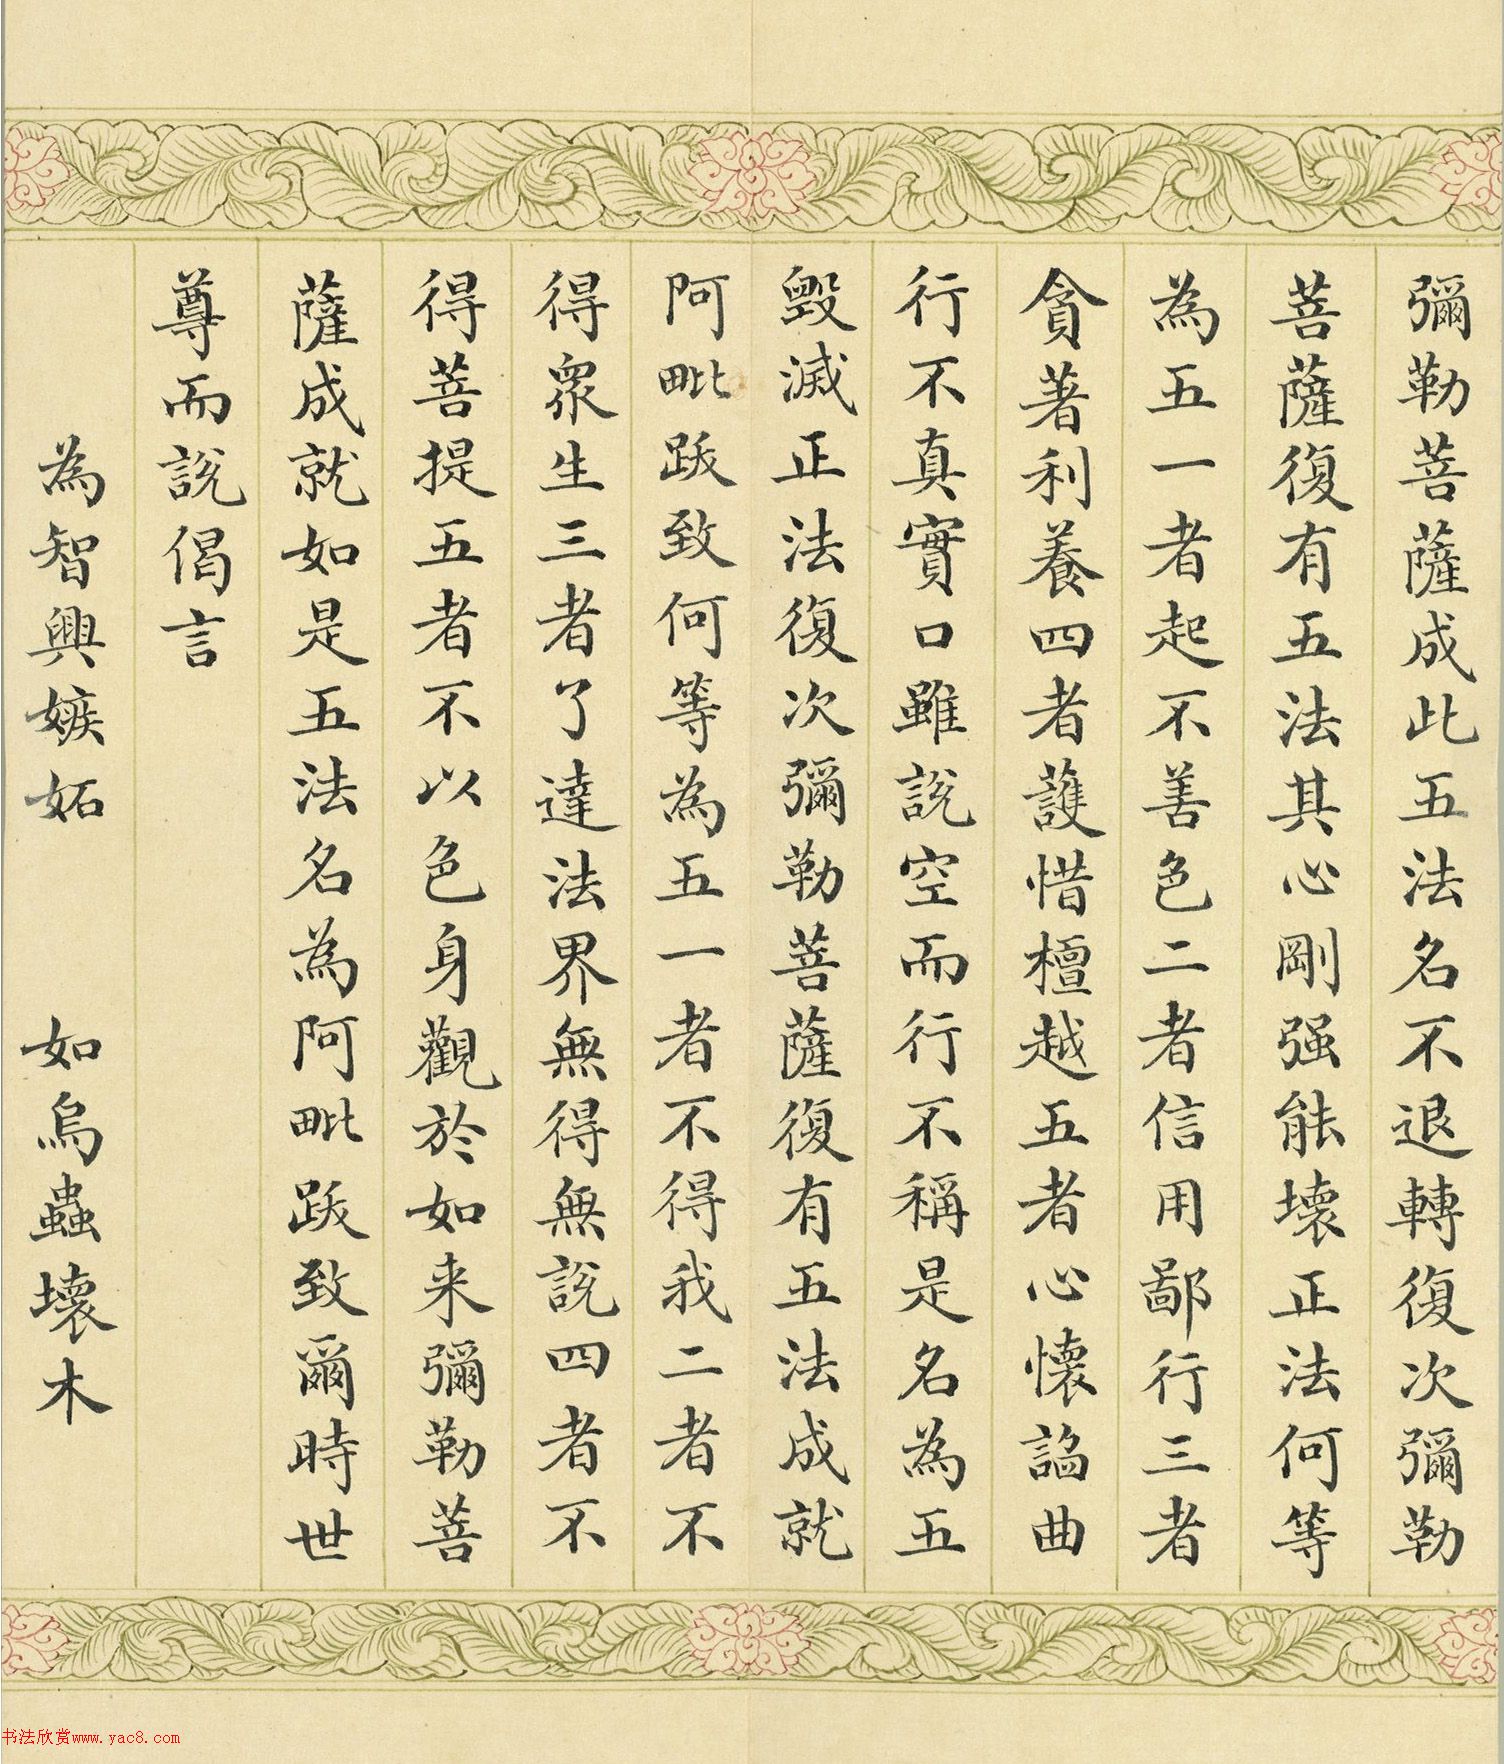 彌勒菩薩成此五法名不退轉復次彌勒
菩薩復有五法其心剛强能壞正法何等
為五一者起不善色二者信用鄙行三者
貪著利養四者護惜檀越五者心懷諂曲
行不真實口雖說空而行不稱是名為五
毀滅正法復次彌勒菩薩復有五法成就
阿毗跋致何等為五一者不得我二者不
得眾生三者了達法界無得無說四者不
得菩提五者不以色身觀於如来彌勒菩
薩成就如是五法名為阿毗跋致爾時世
尊而說偈言
為智興嫉妬 如烏蟲壞木
书法欣赏www.yac8.com